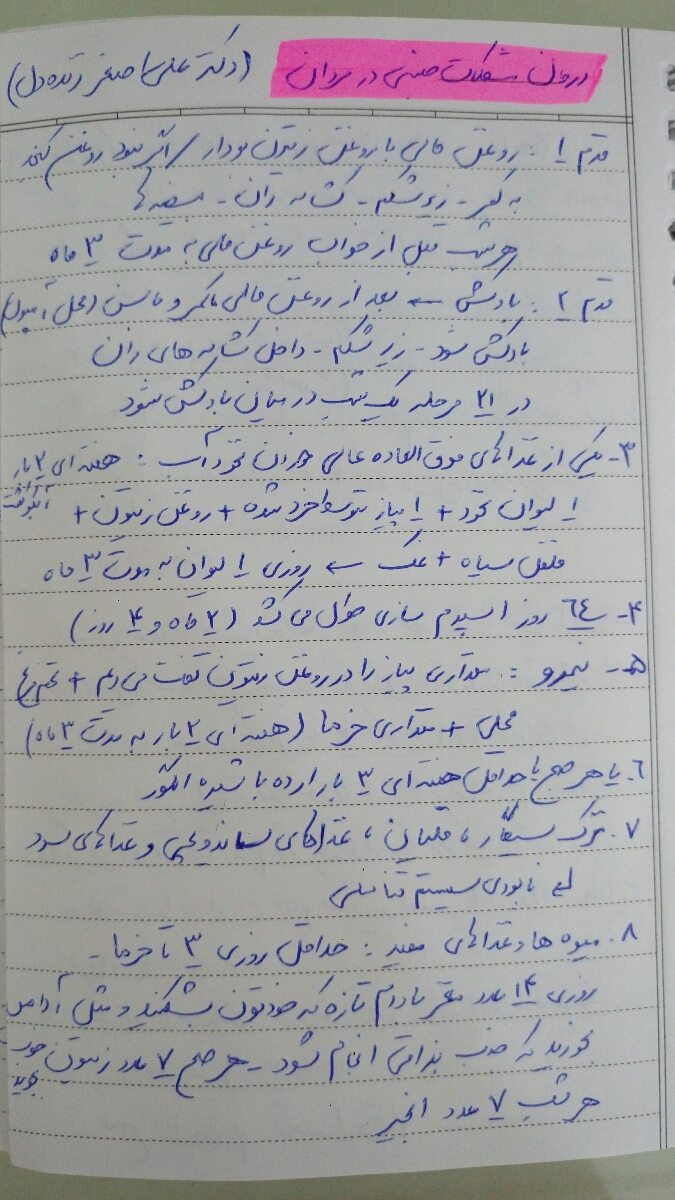 درمان مشکلات جنسی در مردان (دکتر علی اصغر زنده دل)
قدم ۱ : روغن مالی با روغن زیتون بودار / اگر نبود روغن کنجد
به کمر - زیر شکم - کشاله ران - بیضه ها
هر شب قبل از خواب روغن مالی به مدت ۳ ماه
قدم ۲ : بادکشی ← بعد از روغن مالی کمر و باسن (محل آمپول)
بادکش شود - زیر شکم - داخل کشاله های ران
در ۲۱ مرحله یک شب در میان بادکش شود
۳- یکی از غذاهای فوق العاده عالی خوردن نخودآب : هفته ای ۲ بار آبگوشت
۱ لیوان نخود + ۱ پیاز متوسط خرد شده + روغن زیتون +
فلفل سیاه + نمک ← روزی ۱ لیوان به مدت ۳ ماه
۴- ۶۴ روز اسپرم سازی طول می کشد (۲ ماه و ۴ روز)
۵- نیمرو : مقداری پیاز را در روغن زیتون تفت می دم + تخم مرغ
محلی + مقداری خرما (هفته ای ۲ بار به مدت ۳ ماه)
۶. یا هر صبح یا حداقل هفته ای ۳ بار ارده با شیره انگور
۷. ترک سیگار ، قلیان ، غذاهای ساندویچی و غذاهای سرد
نابودی سیستم تناسلی
۸. میوه ها و غذاهای مفید : حداقل روزی ۳ تا خرما -
روزی ۱۴ عدد مغز بادام تازه که خودتون بشکنید و مثل آدامس
بخورید که جذب بزاقی انجام شود - هر صبح ۷ عدد زیتون خوب بجوید
هر شب ۷ عدد انجیر